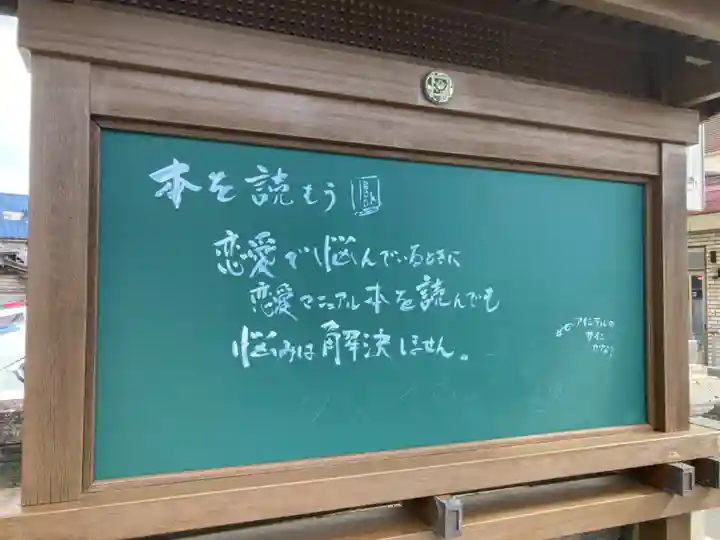 本を読もう BOOK
恋愛で悩んでいるときに
恋愛マニュアル本を読んでも
悩みは解決しません。
サイン
かな?